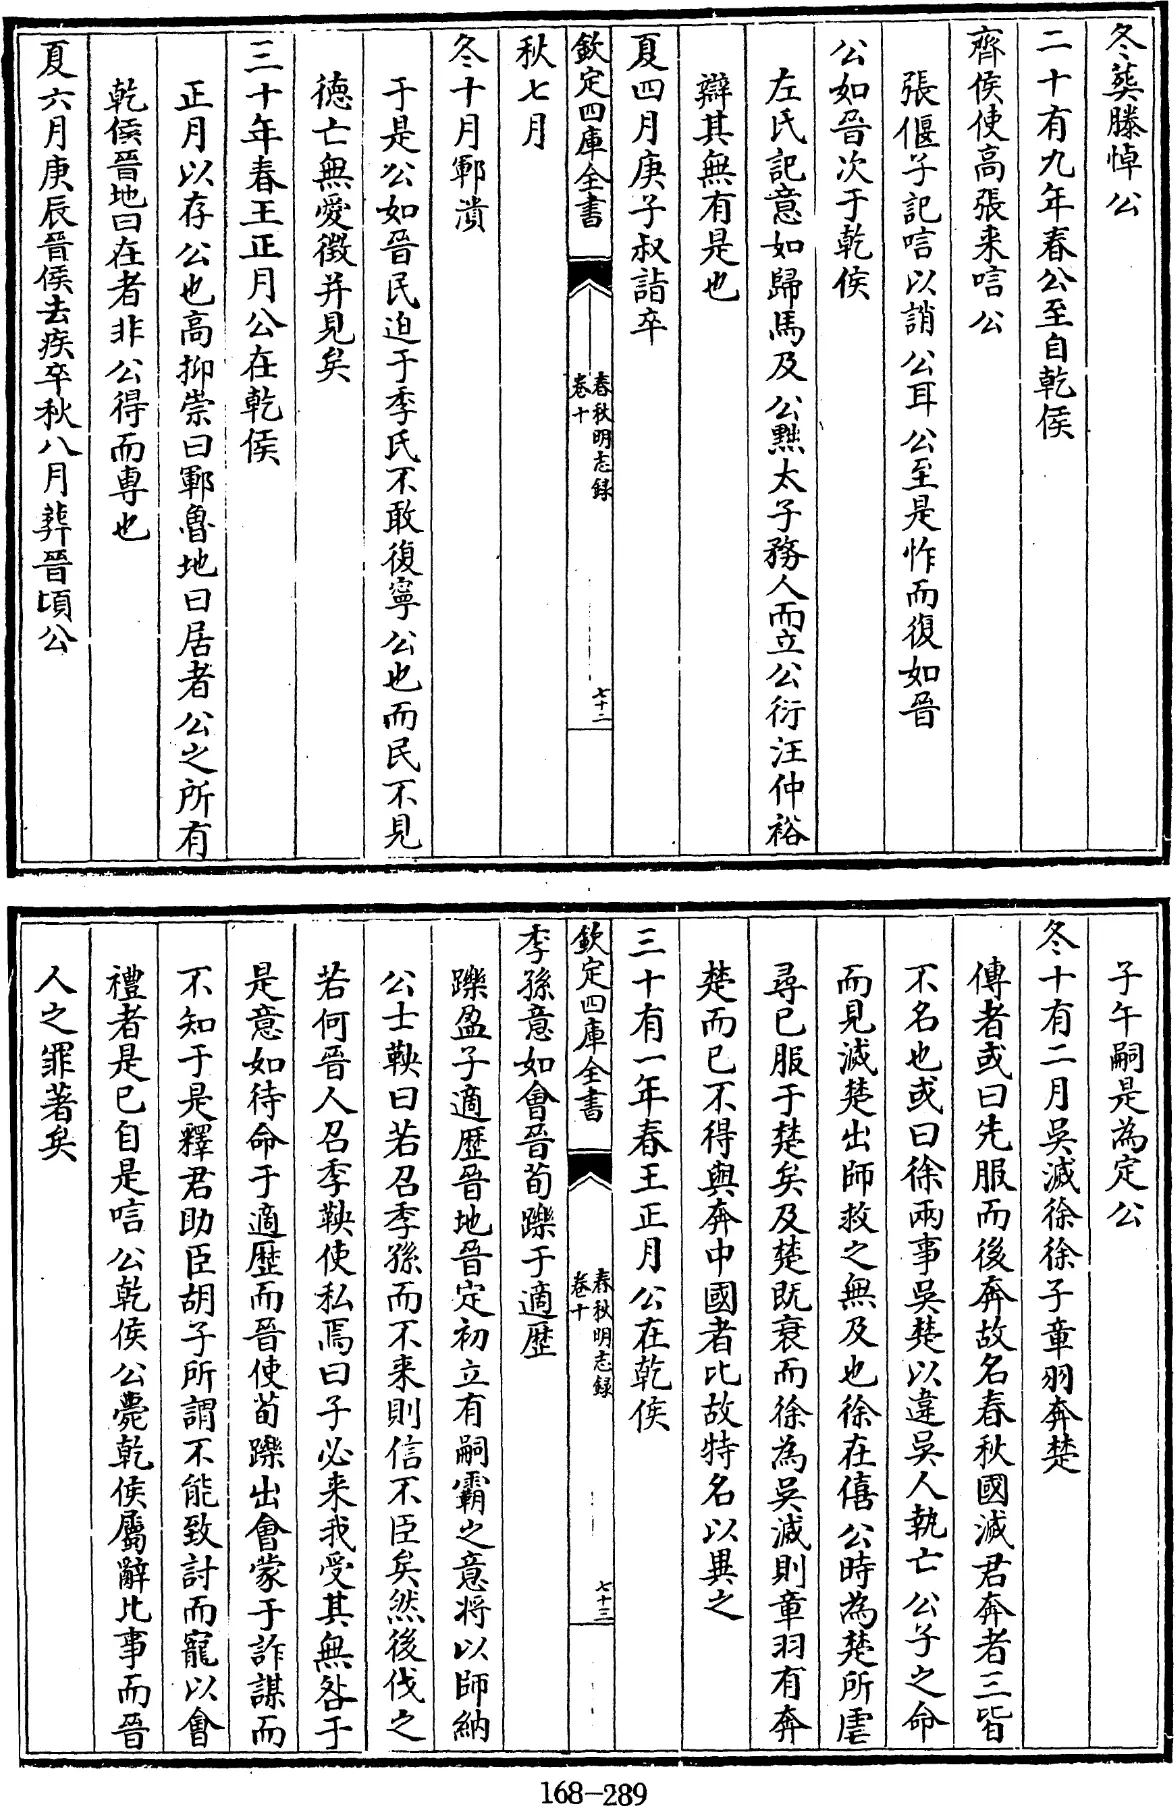 冬葬滕悼公
二十有九年春公至自乾侯
齊侯使高張来唁公
張偃子記唁以誚公耳公至是怍而復如晉
公如晉次于乾侯
左氏記意如歸馬及公黜太子務人而立公衍汪仲裕
辯其無有是也
夏四月庚子叔詣卒
欽定四庫全書
春秋明志録
卷十
七十二
秋七月
冬十月鄆潰
于是公如晉民迫于季氏不敢復寧公也而民不見
徳亡無愛徴并見矣
三十年春王正月公在乾侯
正月以存公也高抑崇曰鄆魯地曰居者公之所有
乾侯晉地曰在者非公得而専也
夏六月庚辰晉侯去疾卒秋八月葬晉頃公
子午嗣是為定公
冬十有二月吳滅徐徐子章羽奔楚
傳者或曰先服而後奔故名春秋國滅君奔者三皆
不名也或曰徐兩事吳楚以違吳人執亡公子之命
而見滅楚出師救之無及也徐在僖公時為楚所虐
尋已服于楚矣及楚既衰而徐為吳滅則章羽有奔
楚而已不得與奔中國者比故特名以異之
三十有一年春王正月公在乾侯
欽定四庫全書
春秋明志録
卷十
七十三
季孫意如會晉荀躒于適歴
躒盈子適歴晉地晉定初立有嗣霸之意将以師納
公士鞅曰若召季孫而不来則信不臣矣然後伐之
若何晉人召季鞅使私焉曰子必来我受其無咎于
是意如待命于適歴而晉使荀躒出會蒙于詐謀而
不知于是釋君助臣胡子所謂不能致討而寵以會
禮者是已自是唁公乾侯公薨乾侯屬辭比事而晉
人之罪著矣
168-289